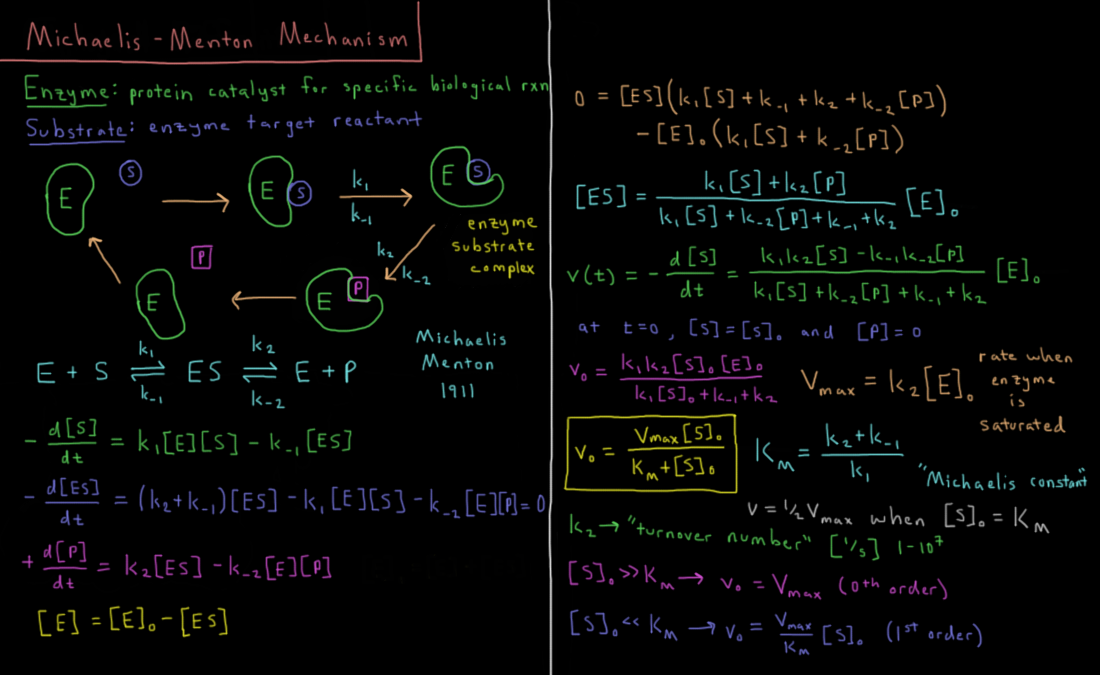 Michaelis - Menton Mechanism
Enzyme: protein catalyst for specific biological rxn
Substrate: enzyme target reactant
E S
E S
k₁
k₋₁
E S
enzyme
substrate
complex
k₂
k₋₂
E P
P
E
E + S ⇌ ES ⇌ E + P
k₁ k₂
k₋₁ k₋₂
Michaelis
Menton
1911
- d[S]/dt = k₁[E][S] - k₋₁[ES]
- d[ES]/dt = (k₂+k₋₁)[ES] - k₁[E][S] - k₋₂[E][P] = 0
+ d[P]/dt = k₂[ES] - k₋₂[E][P]
[E] = [E]₀ - [ES]
0 = [ES](k₁[S] + k₋₁ + k₂ + k₋₂[P])
- [E]₀(k₁[S] + k₋₂[P])
[ES] = k₁[S] + k₂[P] / k₁[S] + k₋₂[P] + k₋₁ + k₂ [E]₀
v(t) = - d[S]/dt = k₁k₂[S] - k₋₁k₋₂[P] / k₁[S] + k₋₂[P] + k₋₁ + k₂ [E]₀
at t=0, [S]=[S]₀ and [P]=0
v₀ = k₁k₂[S]₀[E]₀ / k₁[S]₀ + k₋₁ + k₂
Vmax = k₂[E]₀
rate when
enzyme
is
saturated
v₀ = Vmax[S]₀ / KM + [S]₀
KM = k₂ + k₋₁ / k₁
"Michaelis constant"
v = 1/2 Vmax when [S]₀ = KM
k₂ → "turnover number" [1/s] 1-10⁷
[S]₀ >> KM → v₀ = Vmax (0th order)
[S]₀ << KM → v₀ = Vmax/KM [S]₀ (1st order)